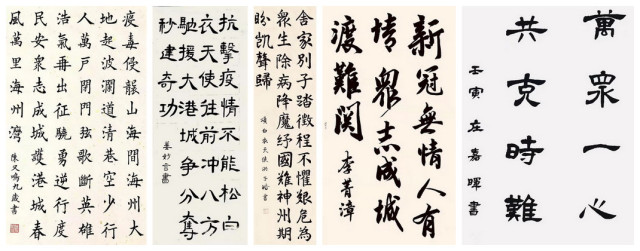 疫毒侵襲山海間海州大
地起波瀾道清巷空少行
人萬戶閉門弦歌斷英雄
浩氣出征驍勇逆行度
民安眾志成城護港城春
風萬里海州灣
陳又鳴九歲書
抗擊疫情不能松白
衣天使往前冲八方
馳援大港城争分奪
秒建奇功
言書
舍家别子踏徵程不懼艱危為
眾生除病降魔紓國難神州期
盼凱聲歸
新冠無情人有
情眾志成城
渡難関
李菁漳
萬眾一心
共克時難
壬寅 左嘉暉書